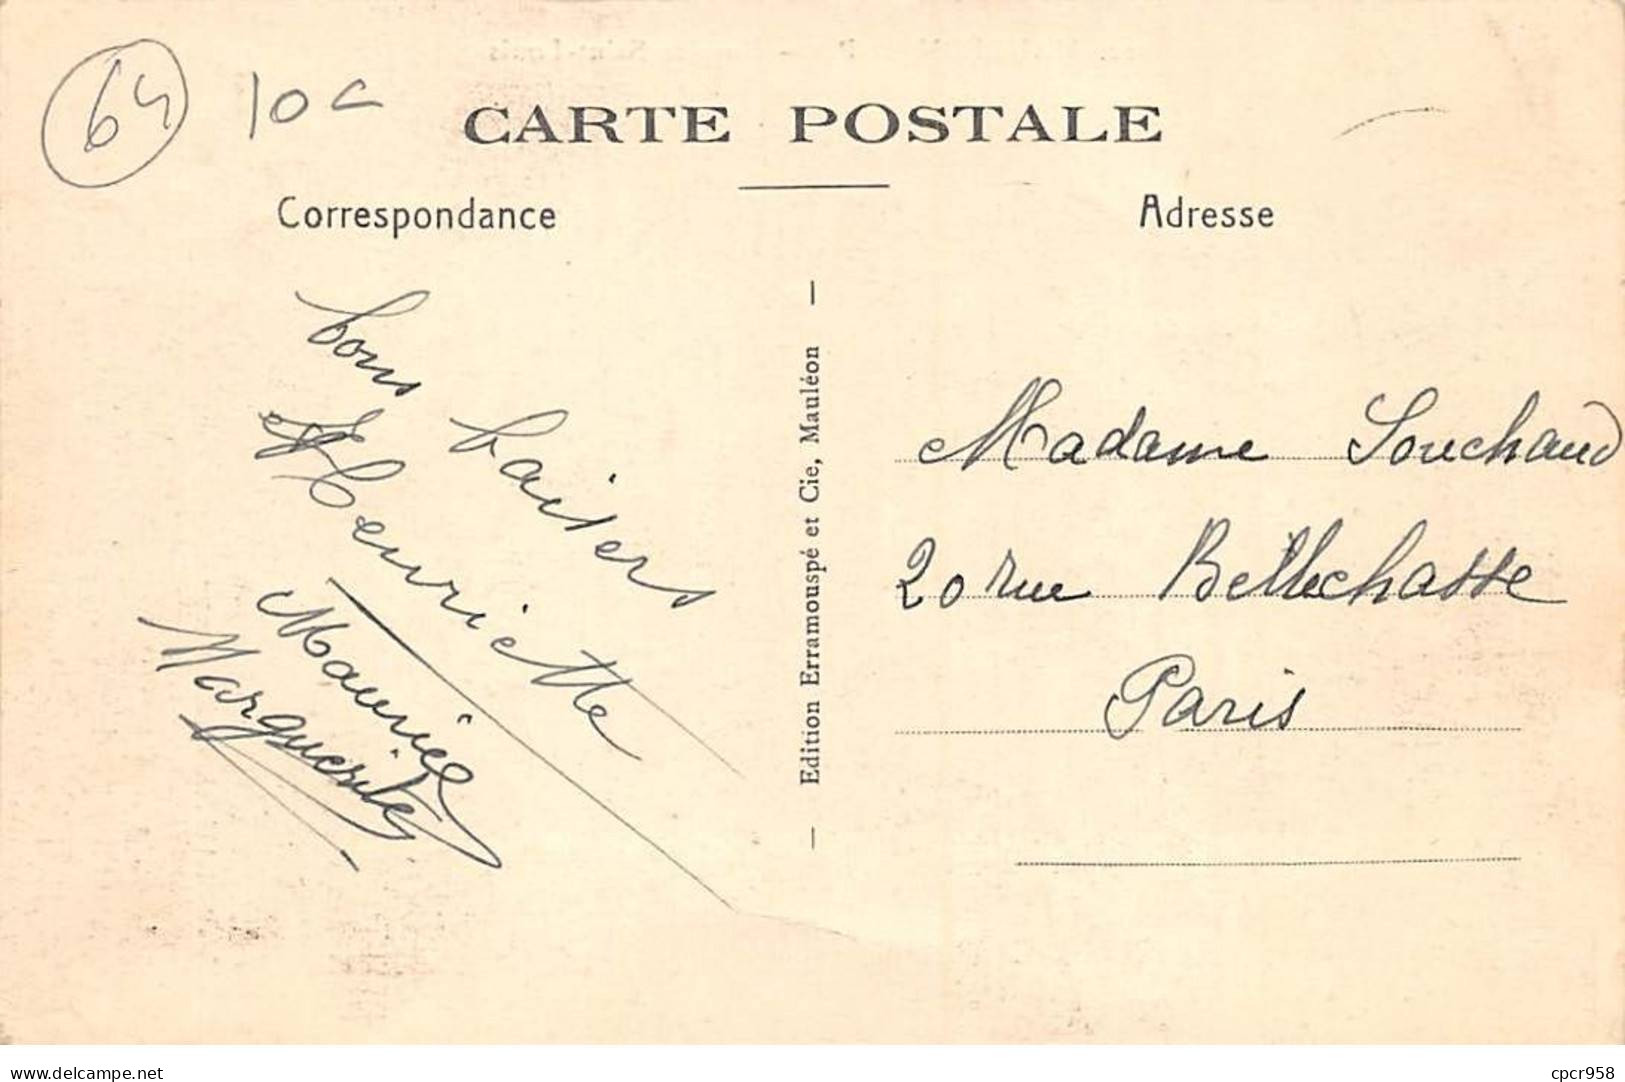 64 10c
CARTE POSTALE
Correspondance
Adresse
bons baisers
Henriette
Maurice
Marguerite
— Edition Erramouspé et Cie, Mauléon —
Madame Souchaud
20 rue Bellechasse
Paris
www.delcampe.net
cpcr958